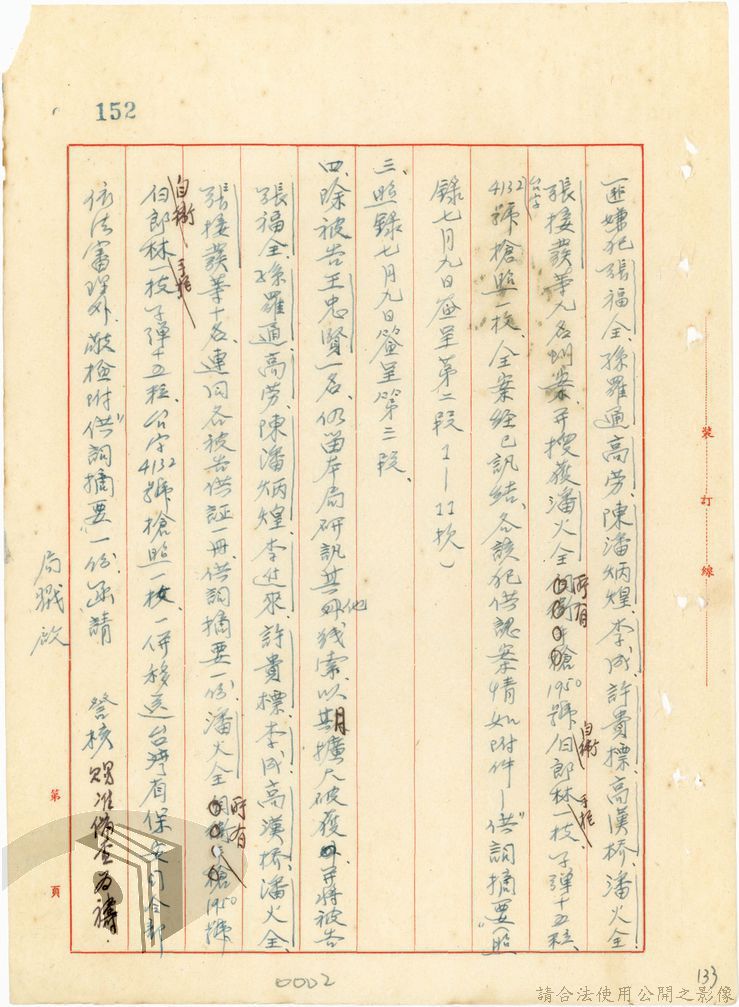 152
匪嫌犯張福全、孫羅通、高勞、陳潘炳煌、李成、許貴標、高漢橋、潘火全
張接發等九名到案、并搜獲潘火全所有1950號伯郎林自衛手槍一枝、子彈十五粒、
台字4132號槍照一枚、全案經已訊結、各該犯供認案情如附件—"供詞摘要"(照
錄七月九日簽呈第二段1—11欵)
三、照錄七月九日簽呈第三段、
四、除被告王忠賢一名、仍留本局研訊其他线索、以期擴大破獲外、并將被告
張福全、孫羅通、高勞、陳潘炳煌、李進來、許貴標、李成、高漢橋、潘火全、
張接發等十名、連同各被告供証一冊、供詞摘要一份、潘火全所有1950號
伯郎林自衛手槍一枝、子彈十五粒、台字4132號槍照一枚、一併移送台灣省保安司令部
依法審理外、敬檢附"供詞摘要"一份、函請 詧核賜准備查為禱
局戳啟
裝訂線
第 頁
0002
133
請合法使用公開之影像